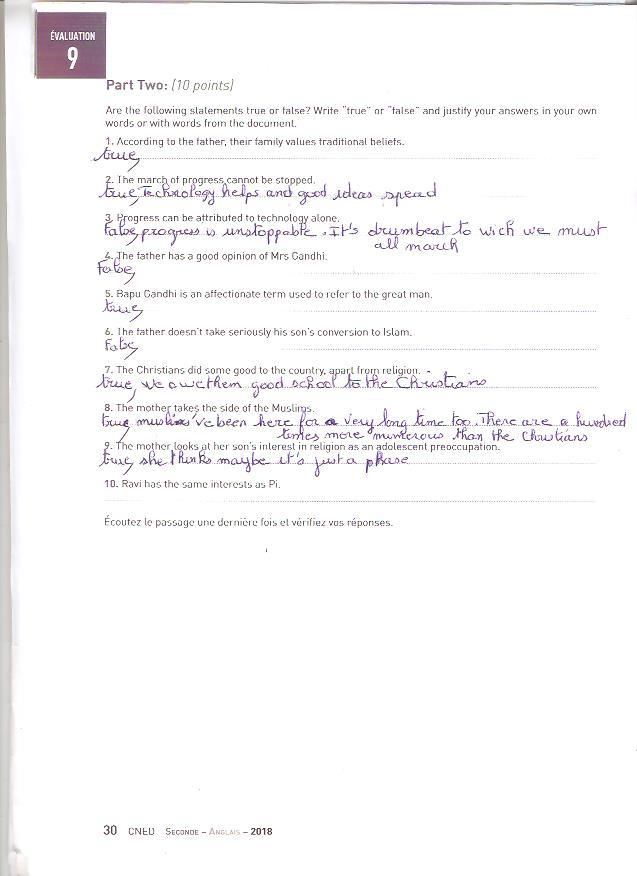 ÉVALUATION
9
Part Two: (10 points)
Are the following statements true or false? Write "true" or "false" and justify your answers in your own
words or with words from the document.
1. According to the father, their family values traditional beliefs.
true,
2. The march of progress cannot be stopped.
true, Technology helps and good ideas spread
3. Progress can be attributed to technology alone.
false, progress is unstoppable. It's drumbeat to wich we must
all march
4. The father has a good opinion of Mrs Gandhi.
false,
5. Bapu Gandhi is an affectionate term used to refer to the great man.
true,
6. The father doesn't take seriously his son's conversion to Islam.
false,
7. The Christians did some good to the country, apart from religion.
true, we owe them good school to the Christians
8. The mother takes the side of the Muslims.
true muslims've been here for a very long time too. There are a hundred
times more numerous than the Christians
9. The mother looks at her son's interest in religion as an adolescent preoccupation.
true, she thinks maybe it's just a phase
10. Ravi has the same interests as Pi.
Écoutez le passage une dernière fois et vérifiez vos réponses.
30 CNED SECONDE – ANGLAIS – 2018